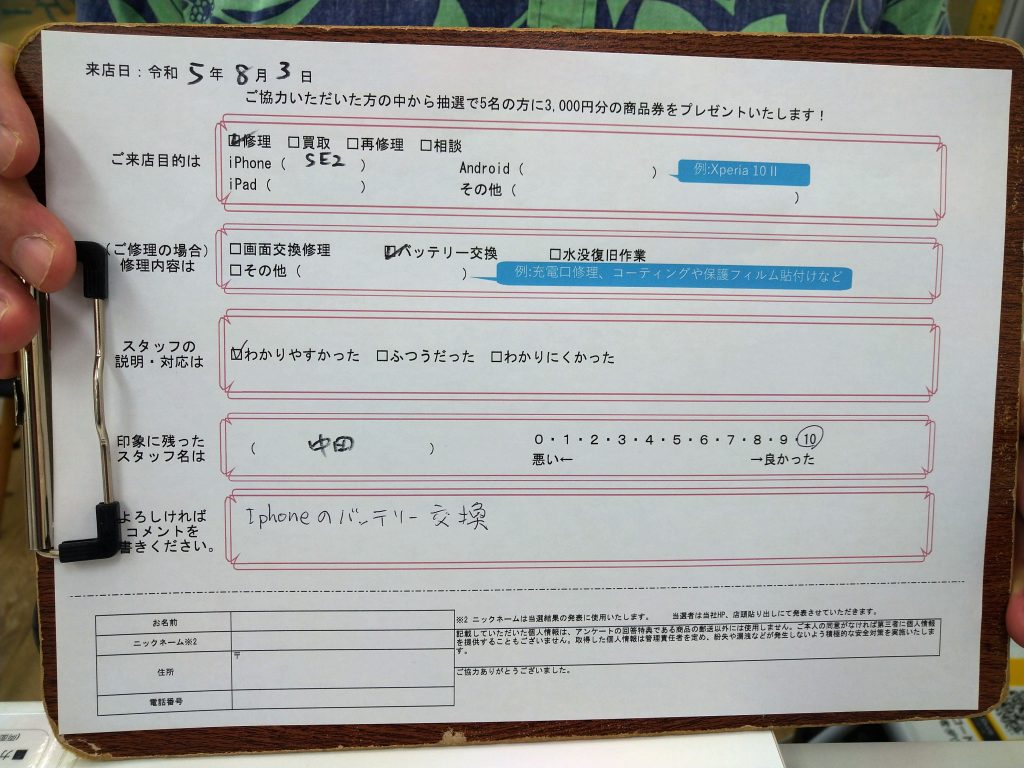 来店日：令和 5年 8月 3日
ご協力いただいた方の中から抽選で5名の方に3,000円分の商品券をプレゼントいたします！
ご来店目的は
☑修理 □買取 □再修理 □相談
iPhone（ SE2 ） Android（ ） 例:Xperia 10 II
iPad（ ） その他（ ）
（ご修理の場合）
修理内容は
□画面交換修理 ☑バッテリー交換 □水没復旧作業
□その他（ ） 例:充電口修理、コーティングや保護フィルム貼付けなど
スタッフの
説明・対応は
☑わかりやすかった □ふつうだった □わかりにくかった
印象に残った
スタッフ名は
（ 中田 ） 0・1・2・3・4・5・6・7・8・9・10
悪い← →良かった
よろしければ
コメントを
書きください。
Iphoneのバッテリー交換
お名前
ニックネーム※2
住所 〒
電話番号
※2 ニックネームは当選結果の発表に使用いたします。 当選者は当社HP、店頭貼り出しにて発表させていただきます。
記載していただいた個人情報は、アンケートの回答特典である商品の郵送以外には使用しません。ご本人の同意がなければ第三者に個人情報
を提供することもございません。取得した個人情報は管理責任者を定め、紛失や漏洩などが発生しないよう積極的な安全対策を実施いたしま
す。
ご協力ありがとうございました。